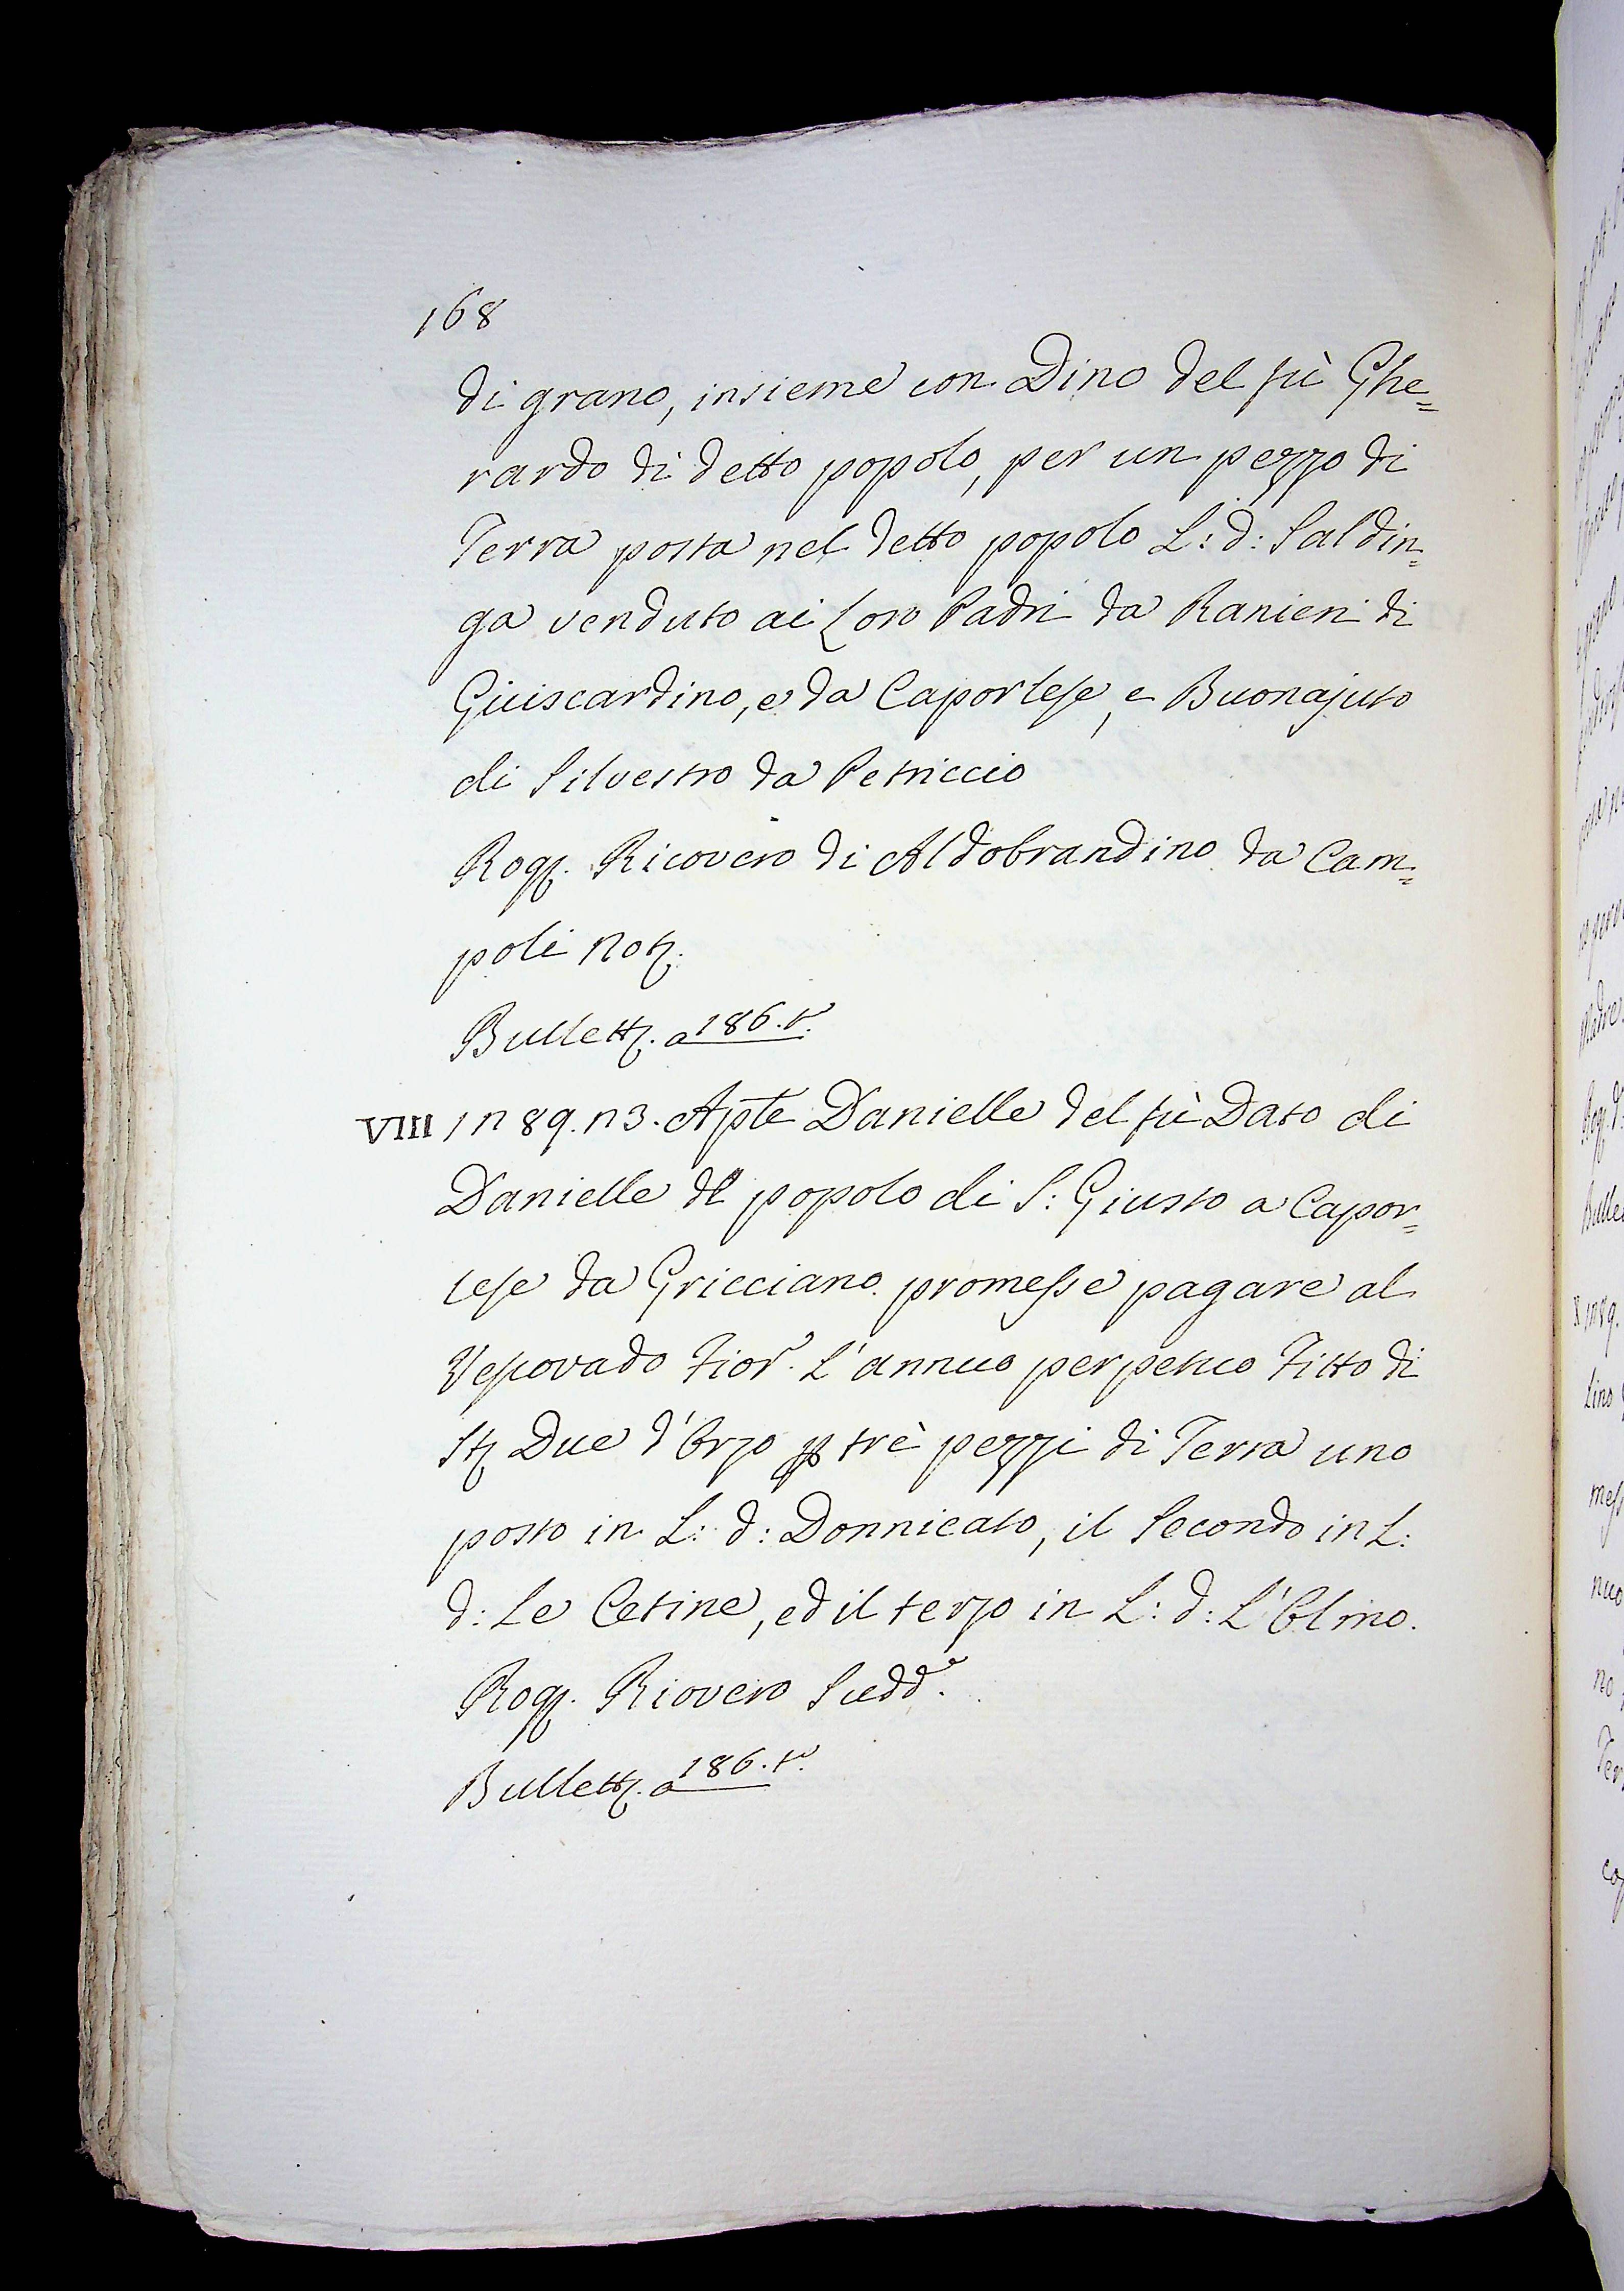 168
di grano, insieme con Dino del fù Ghe=
rardo di detto popolo, per un pezzo di
Terra posta nel detto popolo L: d: Saldin=
ga venduto ai Loro Padri da Ranieri di
Guiscardino, e da Caporlese, e Buonajuto
di Silvestro da Petriccio
Rogg. Ricovero di Aldobrandino da Cam=
poli Not.
Bullett. a 186. t.
VIII 1289. 13. Aple Danielle del fù Dato di
Danielle del popolo di S: Giusto a Capor=
lese da Gricciano promesse pagare al
Vescovado Fior. L'annuo perpetuo Fitto di
St. Due d'Orzo p trè pezzi di Terra uno
posto in L: d: Donnicato, il Secondo in L:
d: Le Cetine, ed il terzo in L: d: L'Olmo.
Rogg. Riovero Sudd.
Bullett. a 186. t.